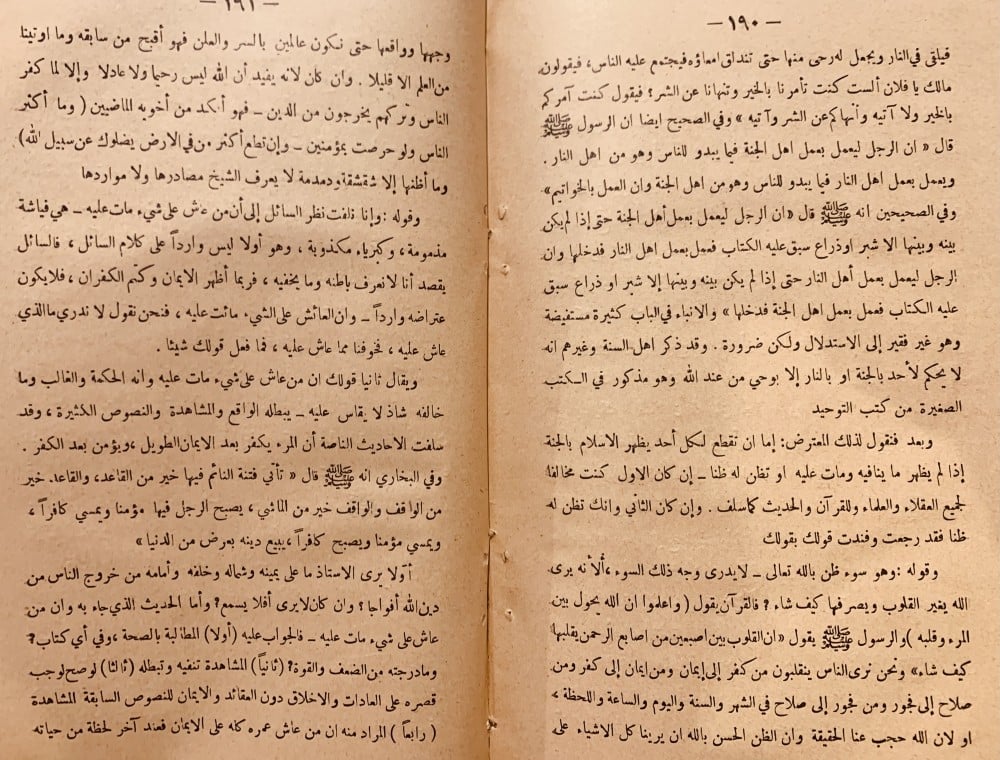 — ١٩٠ —
فيلقى في النار ويجعل له رحى منها حتى تنداق امعاؤه فيجتمع عليه الناس، فيقولون
مالك يا فلان ألست كنت تأمرنا بالخير وتنهانا عن الشر؟ فيقول كنت آمركم
بالخير ولا آتيه وأنهاكم عن الشر وآتيه » وفي الصحيح ايضا ان الرسول ﷺ
قال « ان الرجل ليعمل بعمل اهل الجنة فيما يبدو للناس وهو من اهل النار .
ويعمل بعمل اهل النار فيما يبدو للناس وهو من اهل الجنة وان العمل بالخواتيم»
وفي الصحيحين انه ﷺ قال «ان الرجل ليعمل بعمل أهل الجنة حتى إذا لم يكن
بينه وبينها الا شبر او ذراع سبق عليه الكتاب فعمل بعمل اهل النار فدخلها وان
الرجل ليعمل بعمل أهل النار حتى إذا لم يكن بينه وبينها إلا شبر او ذراع سبق
عليه الكتاب فعمل بعمل اهل الجنة فدخلها » والانباء في الباب كثيرة مستفيضة
وهو غير فقير إلى الاستدلال ولكن ضرورة . وقد ذكر اهل السنة وغيرهم انه
لا يحكم لأحد بالجنة او بالنار إلا بوحي من عند الله وهو مذكور في الكتب
الصغيرة من كتب التوحيد
وبعد فنقول لذلك المعترض: إما ان تقطع لكل أحد يظهر الاسلام بالجنة
إذا لم يظهر ما ينافيه ومات عليه او تظن له ظنا ــ إن كان الاول كنت مخالفا
لجميع العقلاء والعلماء وللقرآن والحديث كما سلف . وإن كان الثاني وانك تظن له
ظنا فقد رجعت وفندت قولك بقولك
وقوله : وهو سوء ظن بالله تعالى ــ لا يدرى وجه ذلك السوء ، ألأنه يرى
الله يغير القلوب ويصرفها كيف شاء ؟ فالقرآن يقول ( واعلموا ان الله يحول بين
المرء وقلبه ) والرسول ﷺ يقول « ان القلوب بين اصبعين من اصابع الرحمن يقلبها
كيف شاء» ونحن نرى الناس ينقلبون من كفر إلى إيمان ومن ايمان إلى كفر ومن
صلاح إلى فجور ومن فجور إلى صلاح في الشهر والسنة واليوم والساعة واللحظة ،
او لان الله حجب عنا الحقيقة وان الظن الحسن بالله ان يرينا كل الاشياء على
— ١٩١ —
وجهها وواقعها حتى نكون عالمين بالسر والعلن فهو أقبح من سابقه وما اوتينا
من العلم الا قليلا . وان كان لانه يفيد أن الله ليس رحيما ولا عادلا وإلا لما كفر
الناس وتركهم يخرجون من الدين ــ فهو أنكد من أخويه الماضيين ( وما أكثر
الناس ولو حرصت بمؤمنين ــ وإن تطع أكثر من في الارض يضلوك عن سبيل الله)
وما أظنها إلا شقشقة ودمدمة لا يعرف الشيخ مصادرها ولا مواردها
وقوله : وإنا نلفت نظر السائل إلى أن من عاش على شيء مات عليه ــ هي فياشة
مذمومة ، وكبرياء مكذوبة ، وهو أولا ليس وارداً على كلام السائل ، فالسائل
يقصد أنا لا نعرف باطنه وما يخفيه ، فربما أظهر الايمان وكتم الكفران ، فلا يكون
عتراضه وارداً ــ وان العائش على الشيء مائت عليه ، فنحن نقول لا ندري ما الذي
عاش عليه ، فخوفنا مما عاش عليه ، فما فعل قولك شيئا .
ويقال ثانيا قولك ان من عاش على شيء مات عليه وانه الحكمة والغالب وما
خالفه شاذ لا يقاس عليه ــ يبطله الواقع والمشاهدة والنصوص الكثيرة ، وقد
سلفت الاحاديث الناصة أن المرء يكفر بعد الايمان الطويل ، ويؤمن بعد الكفر .
وفي البخاري انه ﷺ قال « تأتي فتنة النائم فيها خير من القاعد، والقاعد خير
من الواقف والواقف خير من الماشي ، يصبح الرجل فيها مؤمنا ويمسي كافراً ،
ويمسي مؤمنا ويصبح كافراً ، يبيع دينه بعرض من الدنيا »
أوَلا يرى الاستاذ ما على يمينه وشماله وخلفه وأمامه من خروج الناس من
دين الله أفواجا ؟ وان كان لا يرى أفلا يسمع؟ وأما الحديث الذي جاء به وان من
عاش على شيء مات عليه ــ فالجواب عليه (أولا) المطالبة بالصحة ، وفي أي كتاب؟
وما درجته من الضعف والقوة؟ (ثانياً) المشاهدة تنفيه وتبطله (ثالثا) لو صح لوجب
قصره على العادات والاخلاق دون العقائد والايمان للنصوص السابقة المشاهدة
( رابعاً ) المراد منه ان من عاش عمره كله على الايمان فعند آخر لحظة من حياته